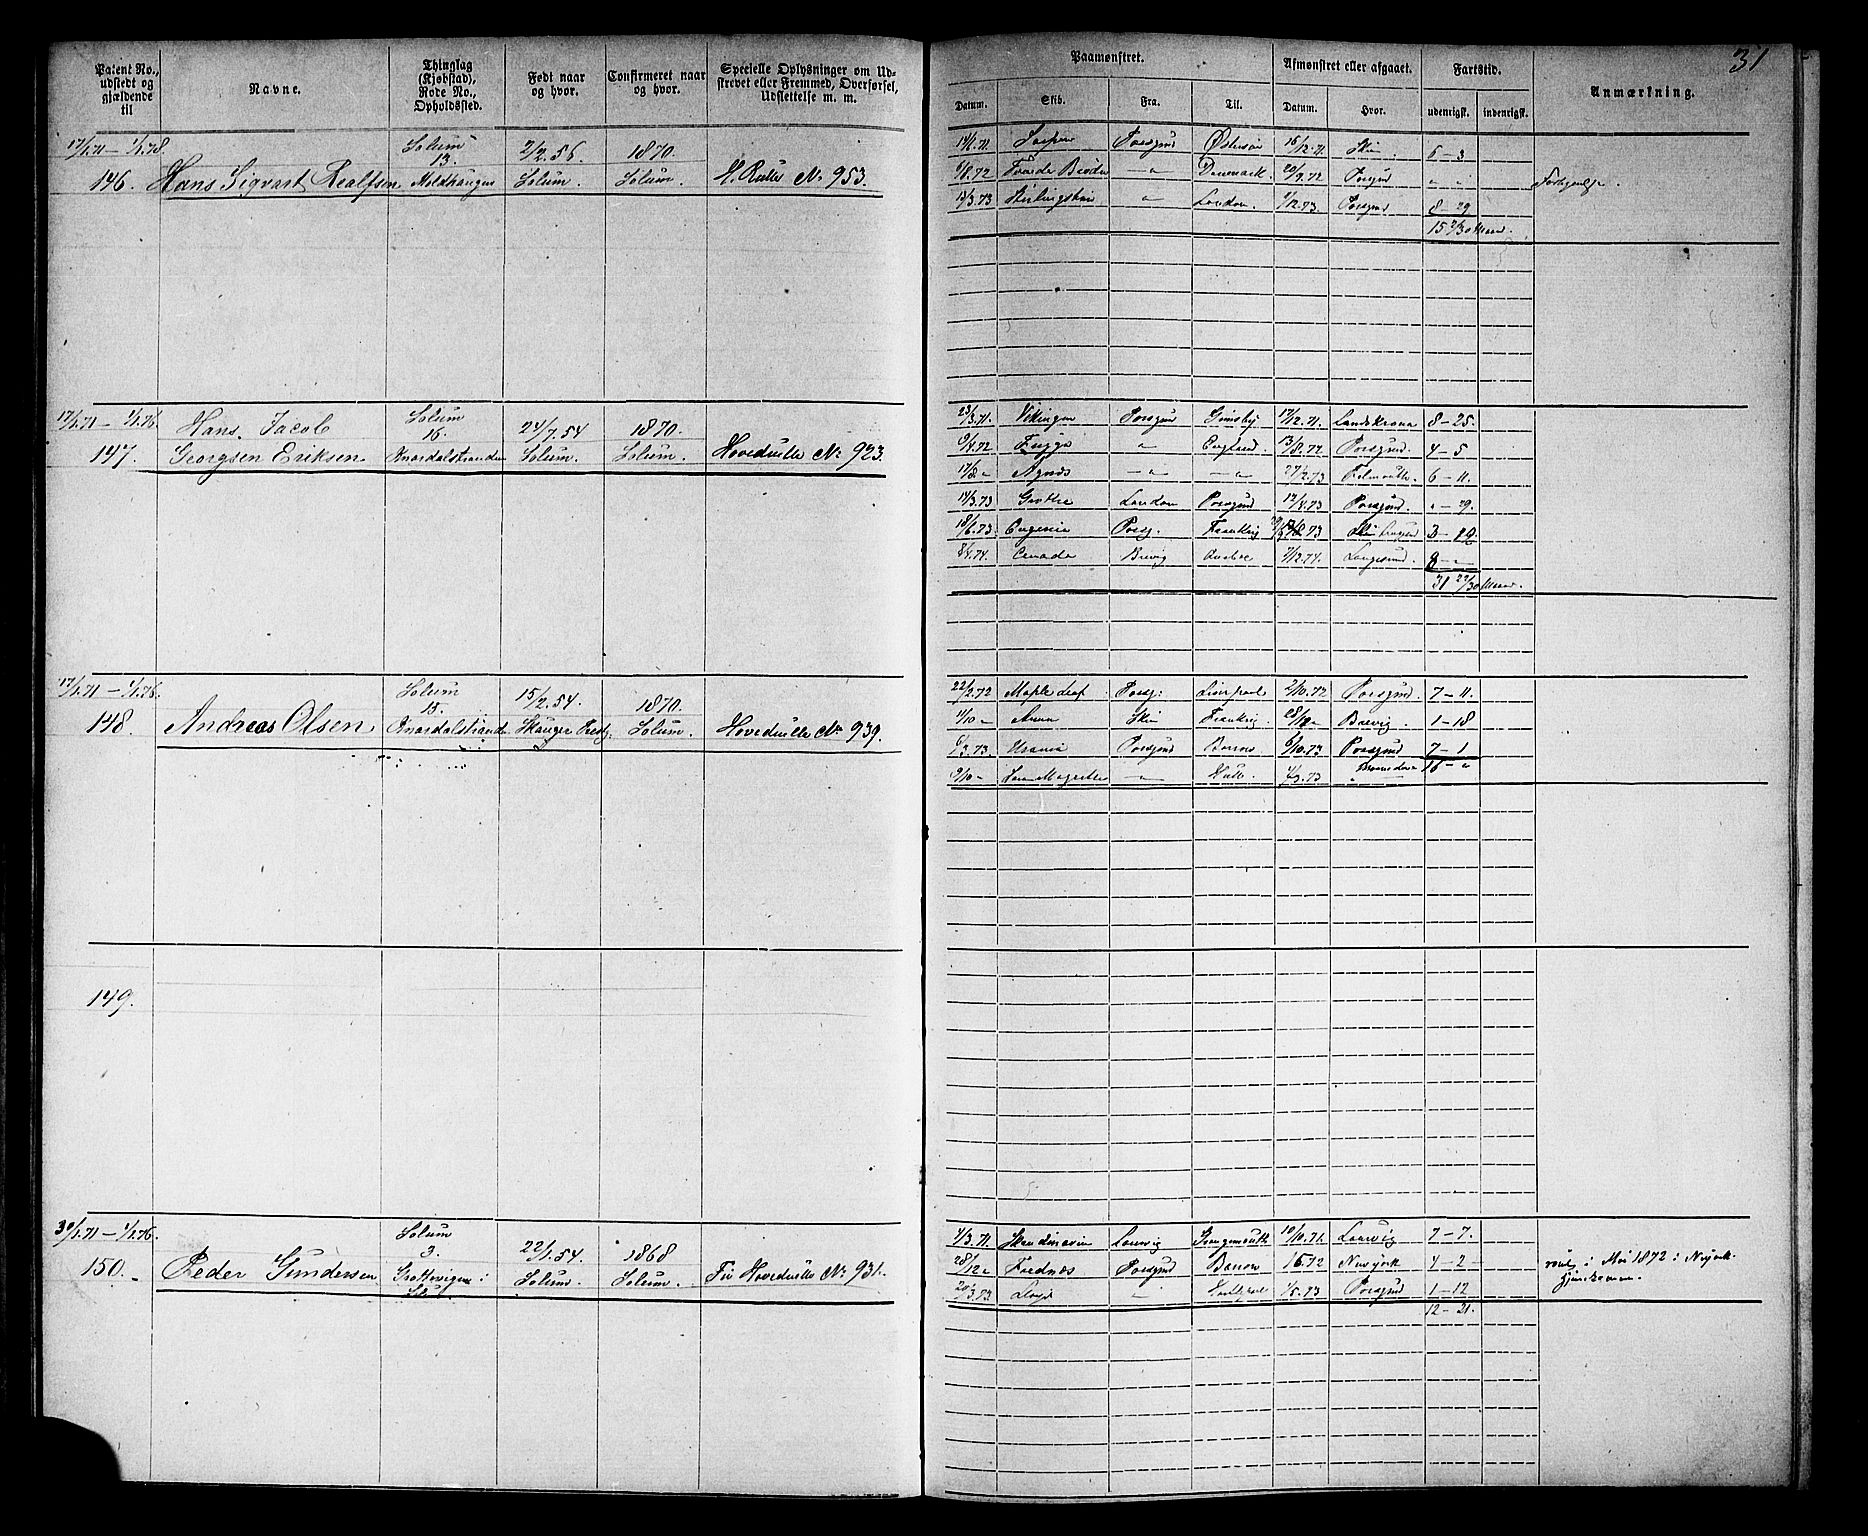 31
Patent No., udstedt og gjældende til
Navne.
Thinglag (Kjøbstad), Rode No., Opholdssted.
Født naar og hvor.
Confirmeret naar og hvor.
Specielle Oplysninger om Udstrevet eller Fremmed, Overførsel, Udslettelse m. m.
Paamønstret.
Afmønstret eller afgaaet.
Fartstid.
Anmærkning.
Datum. Skib. Fra. Til. Datum. Hvor. udenrigsk. indenrigsk.
17/1.71 – 1/1.78. Solum 13. 2/2.56 1870.
146. Hans Sigvart Realfsen Moldhaugen Solum. Solum. H. Rulle No 953.
14/6.71. Porsgrund Østersøen 16/12.71. Skien. 6 – 3
Danmark 20/9.72 Porsgrund " "
12/3.73 " London. 1/12.73. Porsgrund 8 – 29
15 2/30 Maaned.
17/1.71 – 1/1.76. Hans Jacob Solum 16. 24/7.54 1870.
147. Georgsen Eriksen Knardalstranden Solum. Solum. Hovedrulle No 923.
23/3.71. Vikingen Porsgrund Grimsby 17/12.71. Landskrona 8 – 25.
9/4.72 " England 13/8.72 Porsgrund. 4 – 5
17/8 " Agnes – " – – " – 27/2.73 6 – 11.
14/3.73 London Porsgrund 12/4.73 Porsgrund. " – 29.
18/6.73. Eugenie Porsg. Frankrig 3 – 19
8/4.74. Canada Brevig Quebec 7/12.74. Langesund. 8 – "
31 29/30 Maaned.
17/1.71 – 1/1.76. Solum 15. 15/2.54. 1870.
148. Andreas Olsen Knardalstrand Skauger Præstg. Solum. Hovedrulle No 939.
22/2.72 Maple Leaf Porsg: Liverpool 2/10.72 Porsgrund. 7 – 11.
11/10 – Anna Skien Frankrig Brevig. 1 – 18
6/3.73. Urania Porsgrund Barrow 6/10.73 Porsgrund 7 – 1
9/10 – – " – Hull. 16 – "
149.
30/1.71 – 1/1.76. Solum 3. 22/1.54. 1868
150. Peder Gundersen Solum. Solum. Hovedrulle No 931.
1/3.71. Skandinavien Laurvig 10/10.71 Laurvig 7 – 7.
28/12 " Frednæs Porsgrund Barrow 1/5.72 Newyork 4 – 2
20/3.73 – " – 1/5.73 Porsgrund 1 – 12
12 – 21.
i Mai 1872 i Nyork